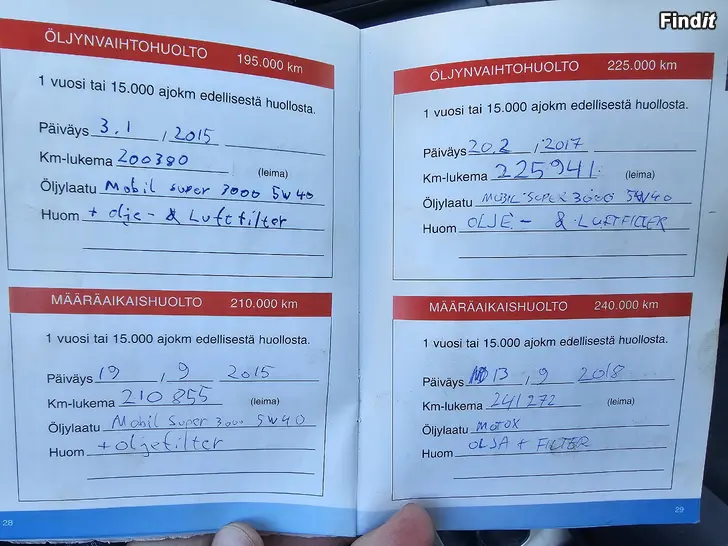 Findit
ÖLJYNVAIHTOHUOLTO 195.000 km
1 vuosi tai 15.000 ajokm edellisestä huollosta.
Päiväys 3.1 , 2015
Km-lukema 200380 (leima)
Öljylaatu Mobil super 3000 5W40
Huom + olje- & Luftfilter
MÄÄRÄAIKAISHUOLTO 210.000 km
1 vuosi tai 15.000 ajokm edellisestä huollosta.
Päiväys 19 , 9 2015
Km-lukema 210855 (leima)
Öljylaatu Mobil Super 3000 5W40
Huom + oljefilter
28
ÖLJYNVAIHTOHUOLTO 225.000 km
1 vuosi tai 15.000 ajokm edellisestä huollosta.
Päiväys 20.2 , 2017
Km-lukema 225941 (leima)
Öljylaatu MOBIL SUPER 3000 5W40
Huom OLJE- & LUFTFILTER
MÄÄRÄAIKAISHUOLTO 240.000 km
1 vuosi tai 15.000 ajokm edellisestä huollosta.
Päiväys 13 , 9 2018
Km-lukema 241272 (leima)
Öljylaatu MOTOX
Huom OLJA + FILTER
29